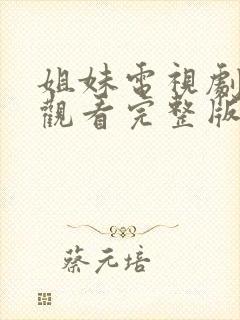 姐妹電視劇
觀看完整版
蔡元培